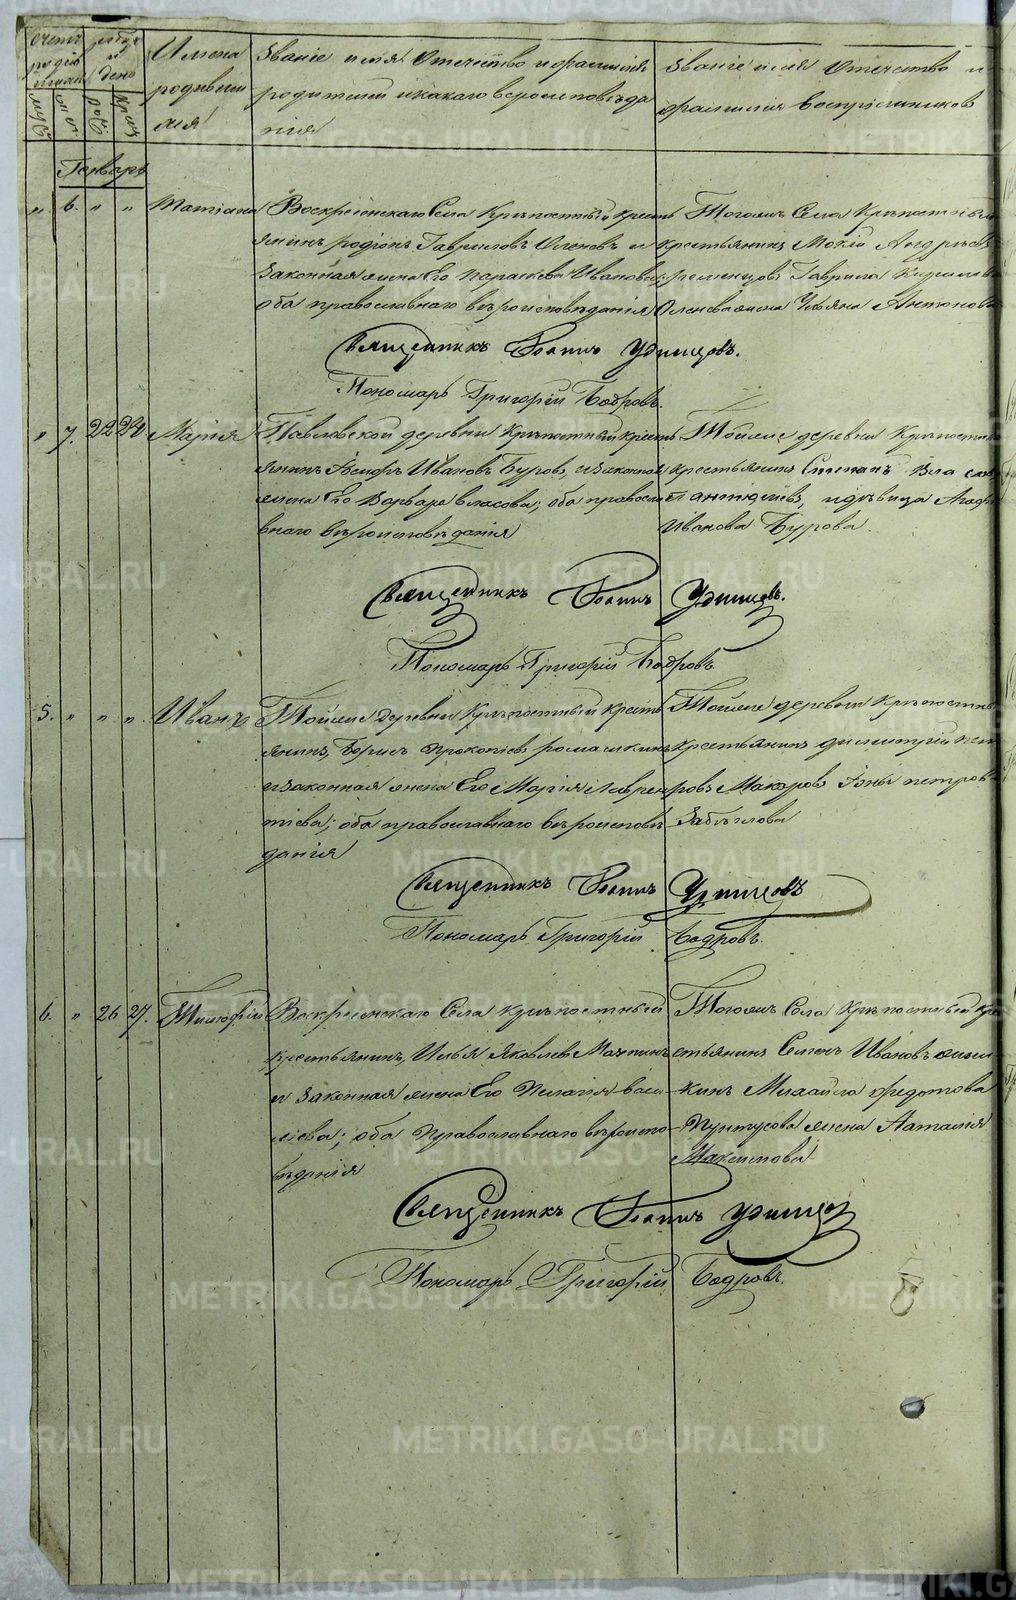 Счетъ родив шихся
муж. жен.
Месяцъ и день
рожд. крещ.
Имена родившихся
Званіе имя Отечество и фамилія
родителей и какаго вероисповѣда
нія
Званіе имя Отечество и
фамилія Воспріемниковъ
Генварь
" 6. " " Татіана
Воскресенскаго Села Крѣпостный крестъ
янинъ Родіонъ Гавриловъ Оленевъ и
Законная жена Его Параскева Иванова;
оба православнаго вѣроисповѣданія
Тогожъ Села Крѣпостный
крестьянинъ Мокій Андреевъ
Гаврила Кирилова
Оленева жена Ульяна Антонова
Священникъ Іоаннъ Удинцовъ.
Пономарь Григорій Бодровъ.
" 7. 22 24 Марія
Павловской деревни Крѣпостный крестъ
янинъ Іосифъ Ивановъ Буровъ, и законная
жена Его Варвара Власова; оба правосла
внаго вѣроисповѣданія
Тойже деревни Крѣпостный
крестьянинъ Степанъ Власовъ
и дѣвица Агаф
Иванова Бурова.
Священникъ Іоаннъ Удинцовъ.
Пономарь Григорій Бодровъ
5. " " ". Иванъ
Тойже деревни Крѣпостный кресть
янинъ, Борисъ Прокопіевъ Ромашкинъ
и законная жена Его Марія Лаврен
тіева; оба православнаго вѣроисповѣ
данія
Тойже деревни Крѣпостный
крестьянинъ Димитрій Пет
ровъ Макаровъ Іоны Петрова
Забѣлова
Священникъ Іоаннъ Удинцовъ
Пономарь Григорій Бодровъ.
6. " 26 27. Тимофій
Воскресенскаго Села Крѣпостный
крестьянинъ, Илья Яковлевъ
и Законная жена Его Пелагія Васи
ліева; оба Православнаго вѣроиспо
вѣданія
Тогожъ Села Крѣпостный кре
стьянинъ Семенъ Ивановъ
кинъ Михаила Федотова
Пунтусова жена Наталія
Максимова
Священникъ Іоаннъ Удинцов
Пономарь Григорій Бодровъ.
METRIKI.GASO-URAL.RU